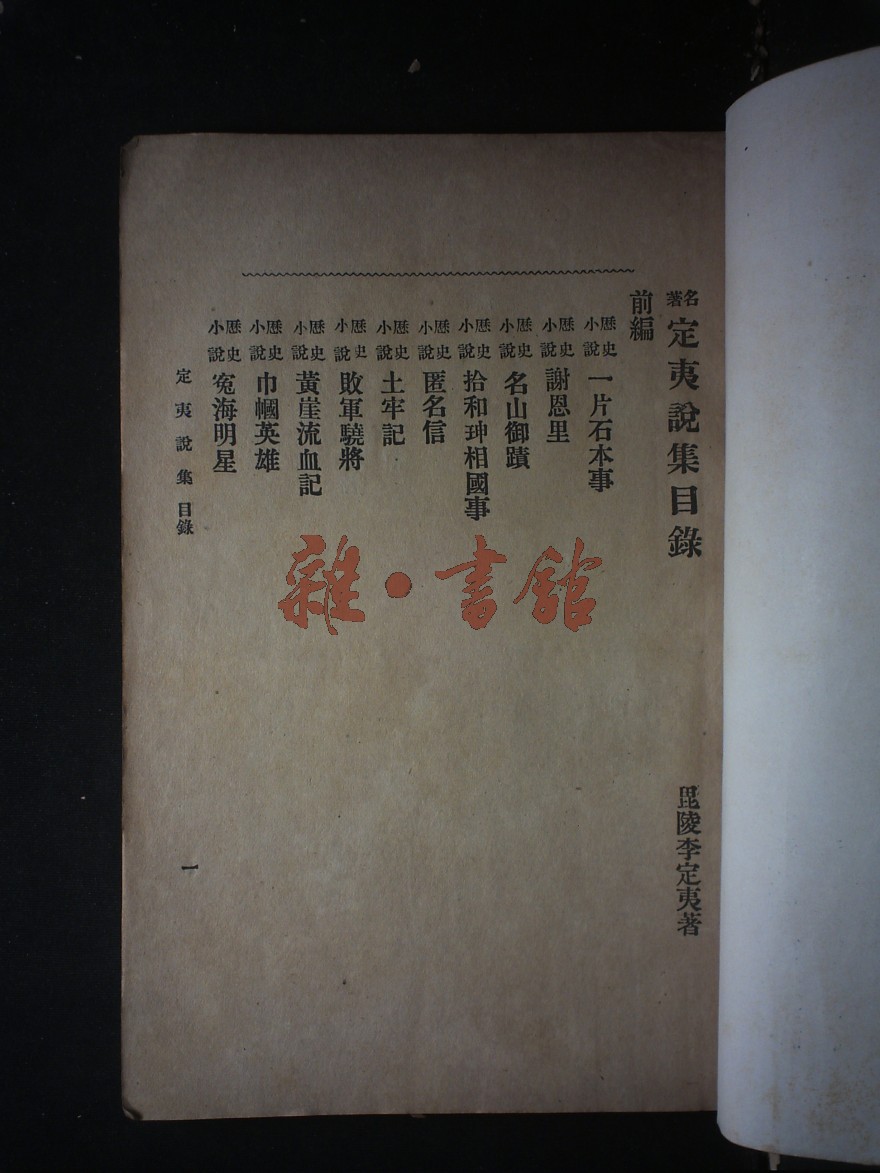 名著 定夷說集目錄
毘陵李定夷著
前編
歷史小說 一片石本事
歷史小說 謝恩里
歷史小說 名山御蹟
歷史小說 拾和珅相國事
歷史小說 匿名信
歷史小說 土牢記
歷史小說 敗軍驍將
歷史小說 黃崖流血記
歷史小說 巾幗英雄
歷史小說 冤海明星
定夷說集 目錄
一
雜·書館